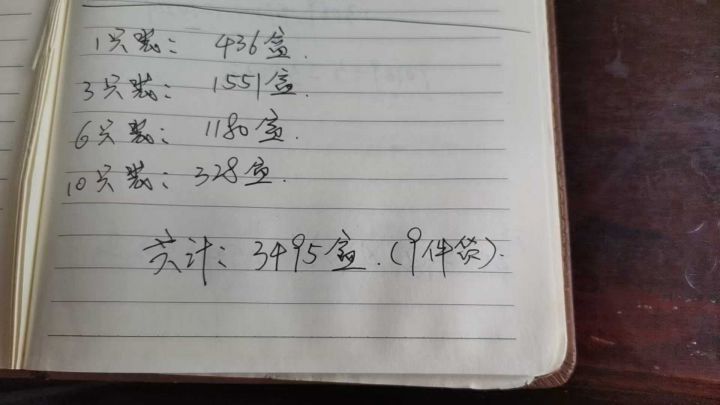 1只装：436盒.
3只装：1551盒.
6只装：1180盒.
10只装：328盒.
共计：3495盒.(9件货).